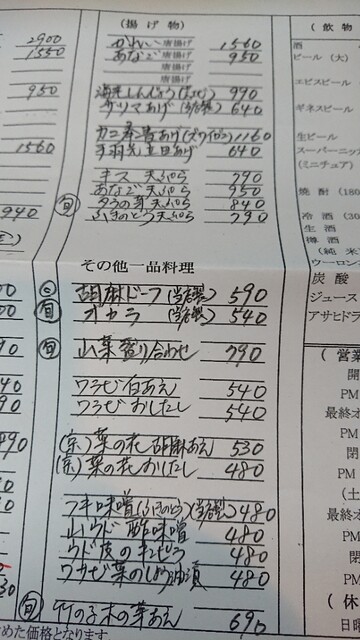 (揚げ物)
かれい 唐揚げ 1560
あなご 唐揚げ 950
唐揚げ
海老しんじょう(大葉) 990
サツマあげ(当店製) 640
カニ茶巾あげ(ズワイガニ) 1160
手羽先立田あげ 640
キス 天ぷら 790
あなご 天ぷら 950
タラの芽 天ぷら 840
ふきのとう 天ぷら 790
その他一品料理
胡麻ドーフ(当店製) 590
旬 オカラ(当店製) 540
旬 山菜盛り合わせ 790
ワラビ白あえ 540
ワラビおしたし 540
(京)菜の花 胡麻あえ 530
(京)菜の花 おしたし 480
フキ味噌(ふきのとう)(当店製) 480
山ウド 酢味噌 480
ウド皮のキンピラ 480
ワサビ葉のしょう油漬 480
旬 竹の子木の芽あえ 690
めた価格となります。
2900
1550
950
1560
940
旬
(飲物
酒
ビール(大)
エビスビール
ギネスビール
生ビール
スーパーニッ
(ミニチュア)
焼酎(180
冷酒(30
生酒
樽酒
(純米
ウーロン
炭酸
ジュース
アサヒドラ
(営業
開
PM
最終オ
PM
閉
PM
(土
PM
最終オ
PM
閉
PM
(休
日曜